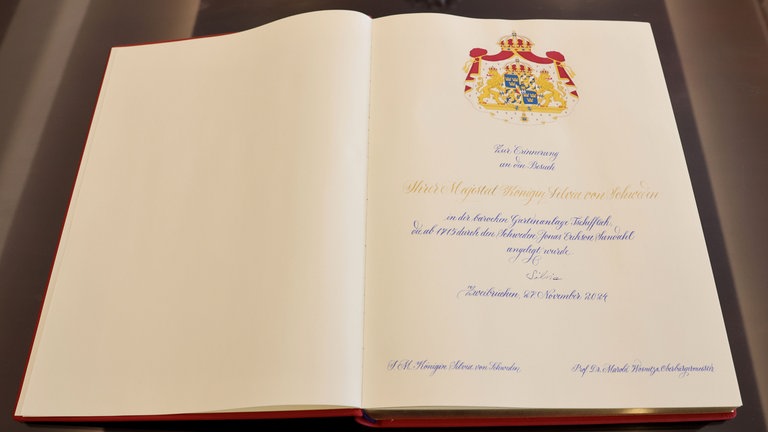 Zur Erinnerung
an den Besuch
Ihrer Majestät Königin Silvia von Schweden
in der barocken Gartenanlage Tschifflick,
die ab 1715 durch den Schweden Jonas Erikson Sundahl
angelegt wurde.
Silvia
Zweibrücken, 27. November 2024
I. M. Königin Silvia von Schweden
Prof. Dr. Marold Wosnitza, Oberbürgermeister